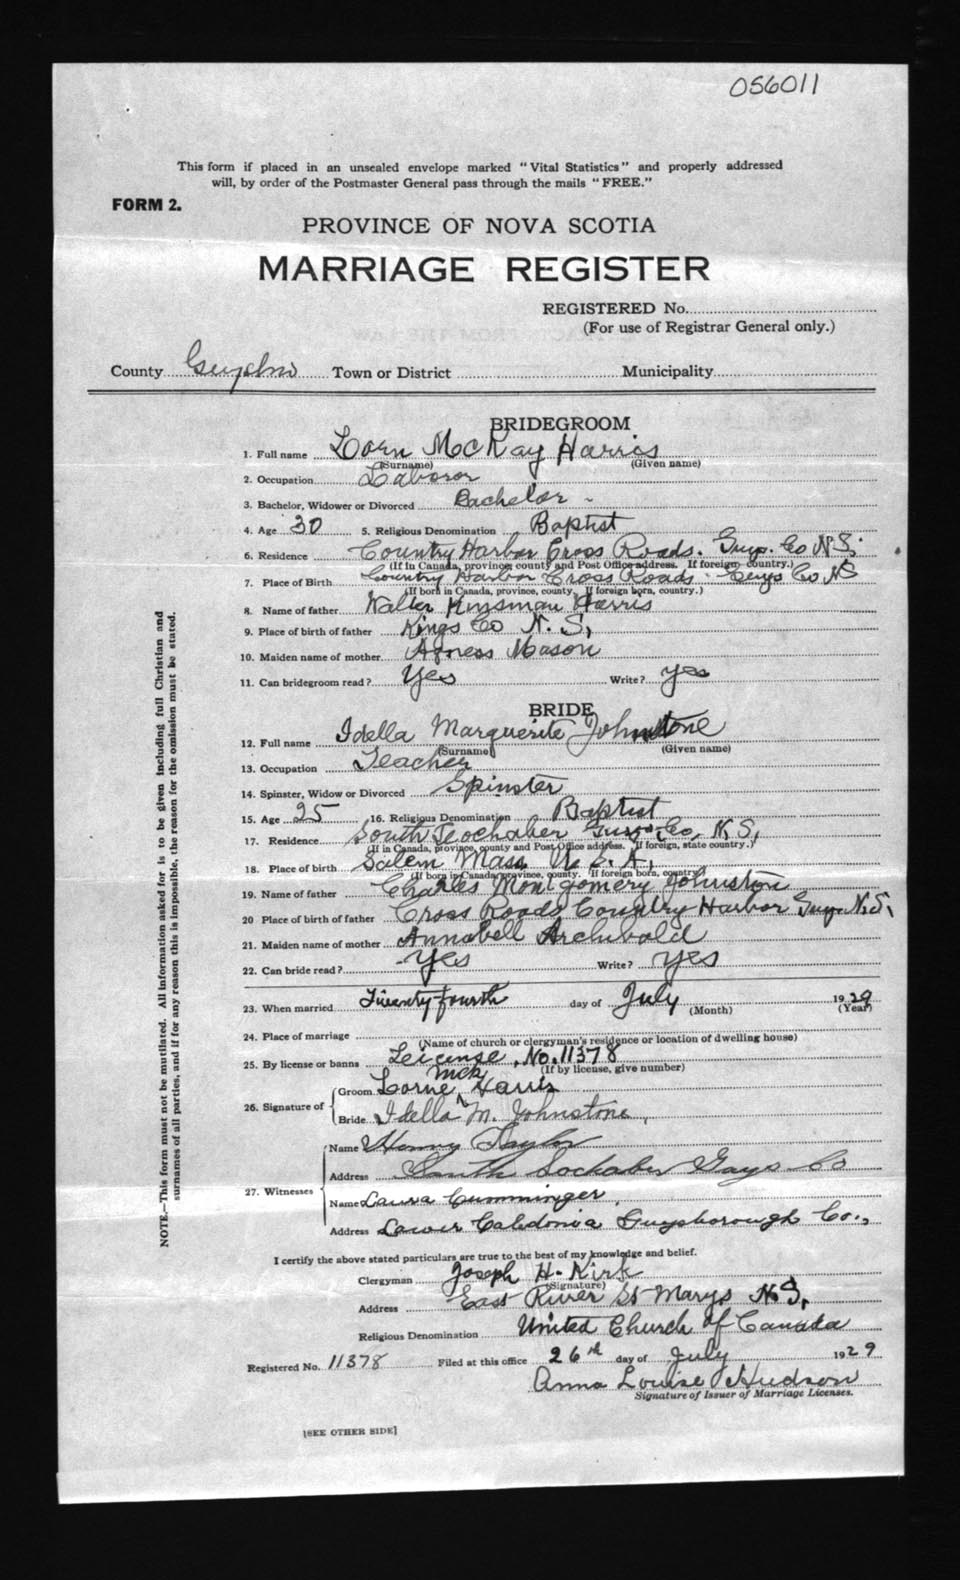 056011
This form if placed in an unsealed envelope marked "Vital Statistics" and properly addressed
will, by order of the Postmaster General pass through the mails "FREE."
FORM 2.
PROVINCE OF NOVA SCOTIA
MARRIAGE REGISTER
REGISTERED No.
(For use of Registrar General only.)
County Guysboro Town or District Municipality
BRIDEGROOM
1. Full name Lorn McKay Harris
(Surname) (Given name)
2. Occupation Laboror
3. Bachelor, Widower or Divorced Bachelor -
4. Age 30 5. Religious Denomination Baptist
6. Residence Country Harbor Cross Roads. Guys. Co N.S.
(If in Canada, province, county and Post Office address. If foreign country.)
7. Place of Birth Country Harbor Cross Roads. Guys Co NS
(If born in Canada, province, county. If foreign born, country.)
8. Name of father Walter Kinsman Harris
9. Place of birth of father Kings Co N.S.
10. Maiden name of mother Agness Mason
11. Can bridegroom read? Yes Write? yes
BRIDE
12. Full name Idella Marguerite Johnstone
(Surname) (Given name)
13. Occupation Teacher
14. Spinster, Widow or Divorced Spinster
15. Age 25 16. Religious Denomination Baptist
17. Residence South Lochaber Guys. Co. N.S.
(If in Canada, province, county and Post Office address. If foreign, state country.)
18. Place of birth Salem Mass U.S.A.
(If born in Canada, province, county. If foreign born, country)
19. Name of father Charles Montgomery Johnston
20 Place of birth of father Cross Roads Country Harbor Guys. N.S.
21. Maiden name of mother Annabell Archibald
22. Can bride read? Yes Write? Yes
23. When married Twenty-fourth day of July 1929
(Month) (Year)
24. Place of marriage
(Name of church or clergyman's residence or location of dwelling house)
25. By license or banns Leicense, No. 11378
(If by license, give number)
26. Signature of Groom Lorne McK Harris
Bride Idella M. Johnstone
27. Witnesses Name Henry Taylor
Address South Lochaber Guys Co
Name Laura Cumminger
Address Lower Caledonia Guysborough Co.,
I certify the above stated particulars are true to the best of my knowledge and belief.
Clergyman Joseph H. Kirk
(Signature)
Address East River St Marys N.S.
Religious Denomination United Church of Canada
Registered No. 11378 Filed at this office 26th day of July 1929
Anna Louise Hudson
Signature of Issuer of Marriage Licenses.
[SEE OTHER SIDE]
NOTE.—This form must not be mutilated. All information asked for is to be given including full Christian and
surnames of all parties, and if for any reason this is impossible, the reason for the omission must be stated.